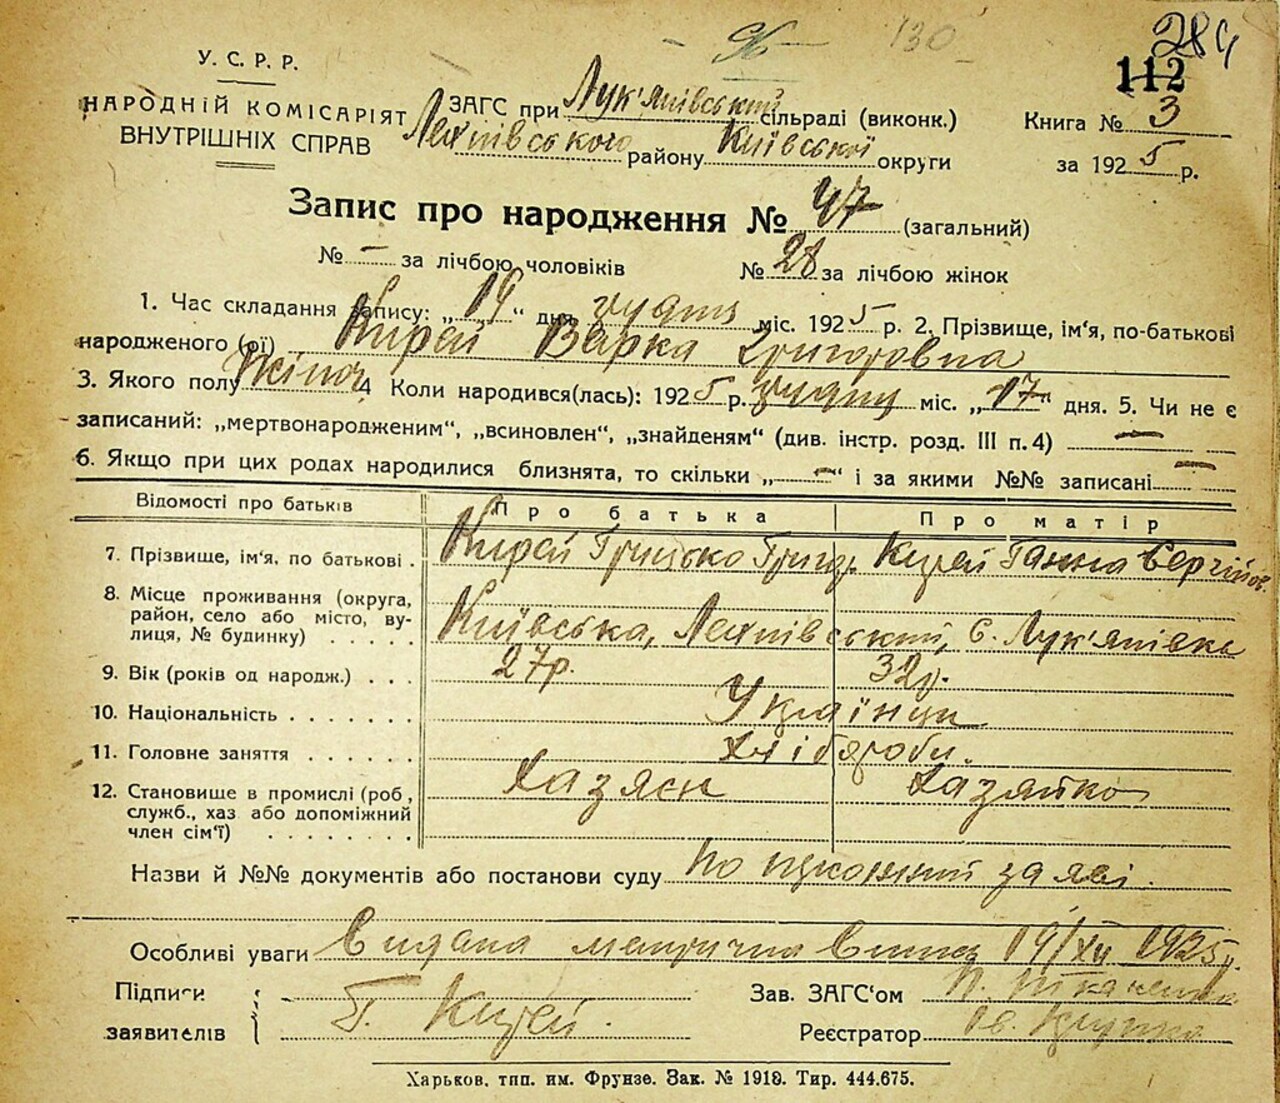 130
284
112
У. С. Р. Р.
НАРОДНІЙ КОМІСАРІЯТ
ВНУТРІШНІХ СПРАВ
ЗАГС при Лук'янівський сільраді (виконк.)
району Київської округи
Книга № 3
за 1925 р.
Запис про народження № 47 (загальний)
№ – за лічбою чоловіків № 28 за лічбою жінок
1. Час складання запису: „19“ дня грудня міс. 1925 р. 2. Прізвище, ім'я, по-батькові
народженого (ої) Кирей Варка Григоровна
3. Якого полу Жіноч 4 Коли народився(лась): 1925 р. грудня міс. „17“ дня. 5. Чи не є
записаний: „мертвонародженим“, „всиновлен“, „знайденям“ (див. інстр. розд. III п. 4) —
6. Якщо при цих родах народилися близнята, то скільки „–“ і за якими №№ записані –
Відомості про батьків Про батька Про матір
7. Прізвище, ім'я, по батькові . Кирей Грицько Григор. Кирей Ганна Сергійов.
8. Місце проживання (округа,
район, село або місто, ву-
лиця, № будинку) . . . . . Київська, с. Лук'янівка
9. Вік (років од народж.) . . . 27р. 32р.
10. Національність . . . . . . . Українці
11. Головне заняття . . . . . . Хліброби.
12. Становище в промислі (роб,
служб., хаз або допоміжний
член сім'ї) . . . . . . . . Хазяєн Хазяйка
Назви й №№ документів або постанови суду По заяві.
Особливі уваги Видана метрична випис 19/XII 1925р.
Підписи
заявителів Г. Кирей.
Зав. ЗАГС'ом П. Ткаченко
Реєстратор Ів.
Харьков. тип. им. Фрунзе. Зак. № 1918. Тир. 444.675.